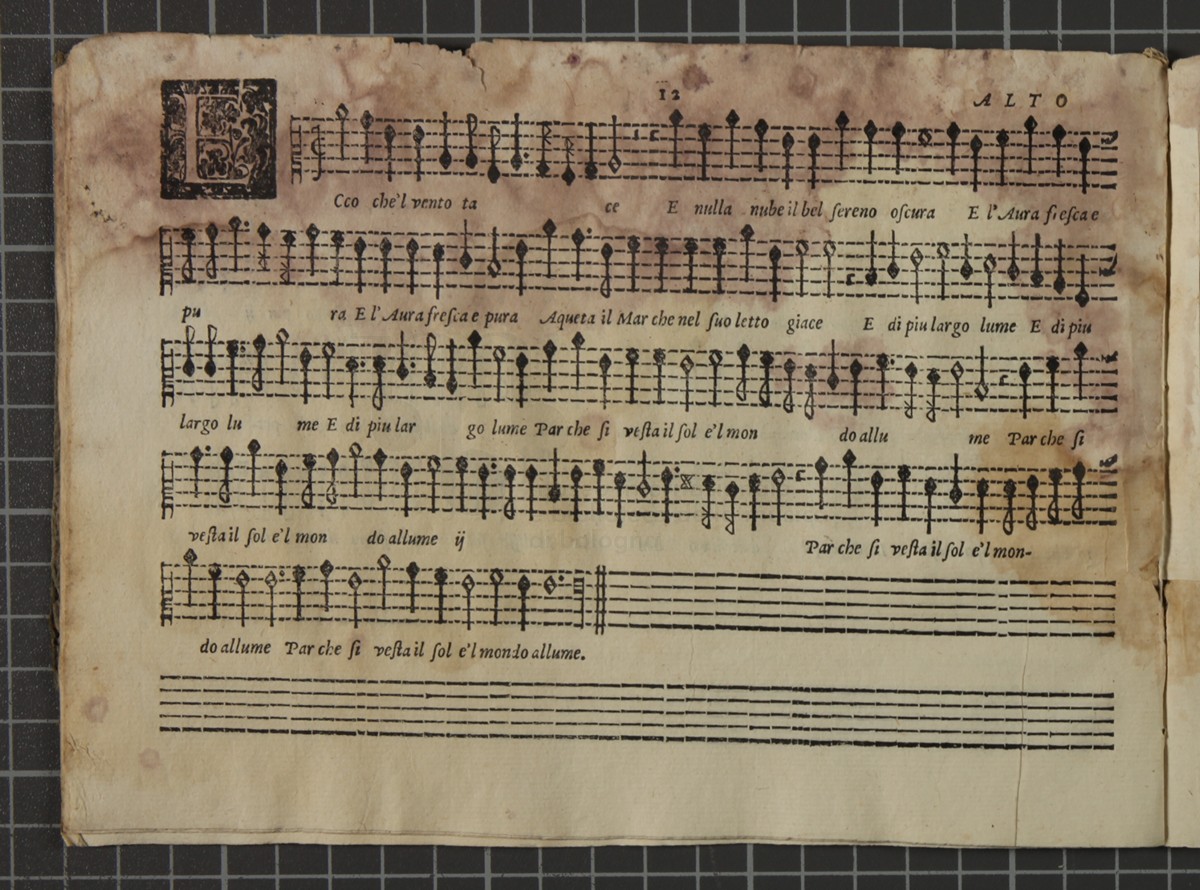 12
ALTO
ECco che'l vento ta ce E nulla nube il bel sereno oscura E l'Aura fresca e
pu ra E l'Aura fresca e pura Aqueta il Mar che nel suo letto giace E di piu largo lume E di piu
largo lu me E di piu lar go lume Par che si vesta il sol e'l mon do allu me Par che si
vesta il sol e'l mon do allume ij Par che si vesta il sol e'l mon-
do allume Par che si vesta il sol e'l mondo allume.